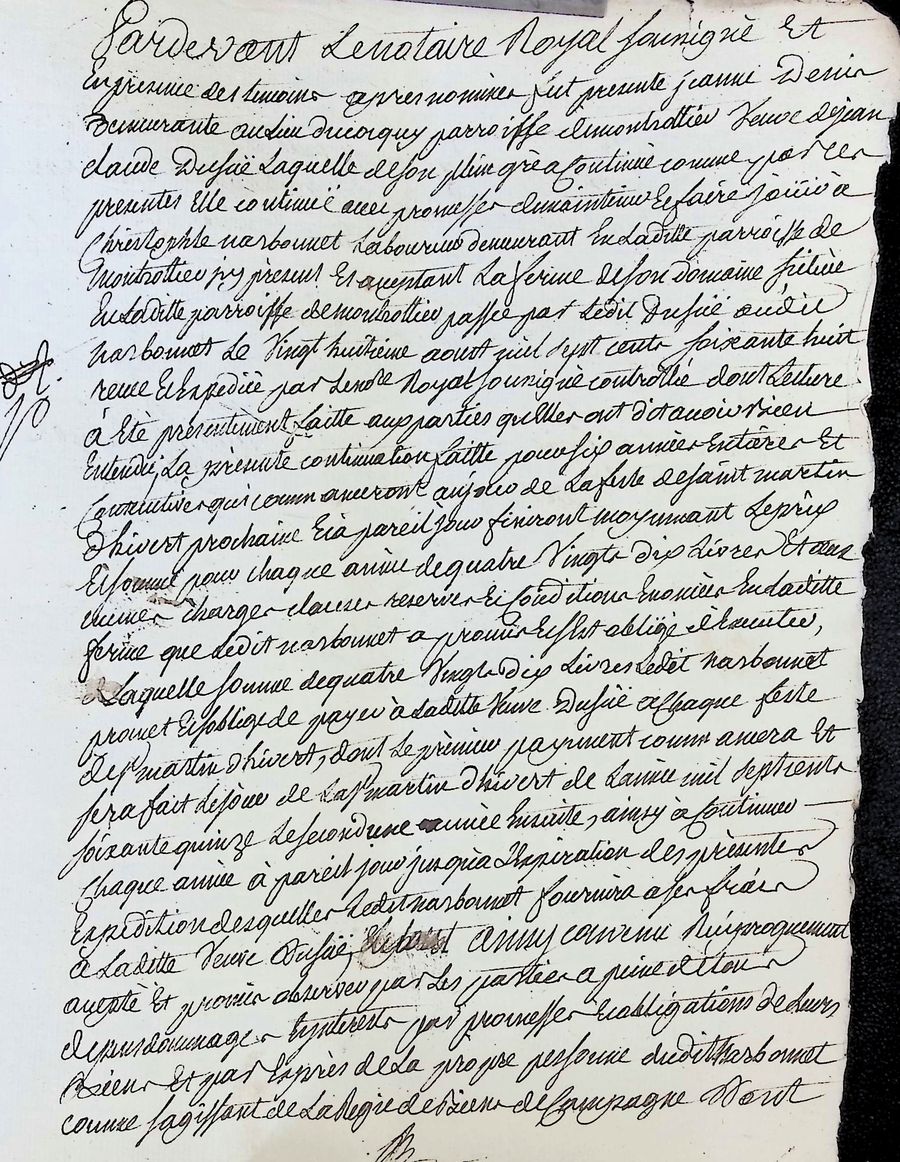 Pardevant Lenotaire Royal sousigné Et
En presence des temoins apres nommes fut presente jeanne Denis
Demeurante au Lieu ducorguy parroisse demontrottier Veuve de jean
claude Dussuë Laquelle deson plein gré a Continüé comme par ces
presentes Elle continuë avec promesses demaintenir Et faire joüir à
Christophle narbonnet Laboureur demeurant En Laditte parroisse de
Montrottier jcy present Et aceptant La ferme deson domaine sitüée
En Laditte parroisse demontrottier passée par Ledit Dussuë audit
narbonnet Le Vingt huitième aoust mil sept cents soixante huit
reçue Et Expediée par Lenore Royal sousigné controllée dont Lecture
à Eté presentement faitte aux parties qu'Elles ont dit avoir bien
Entendüe, La presente continuation faitte pour six années Entières Et
Consecutives qui commanceront aujour de La feste desaint martin
d'hivert prochaine Et à pareil jour finiront moyennant Le prix
Et somme pour chaque année dequatre Vingts dix Livres Et aux
mêmes charges clauses reserves Et Conditions Enoncées En Laditte
ferme que Ledit narbonnet a promis Et s'Est obligé d'Executer,
Laquelle somme dequatre Vingts Dix Livres Ledit narbonnet
promet Et s'oblige de payer à Laditte Veuve Dussuë à Chaque feste
de st martin d'hivert, dont Le premier payement commancera Et
sera fait Lejour de La st martin d'hivert de Lannée mil septcents
soixante quinze Le second une année Ensuite, ainsy à Continuer
Chaque année à pareil jour jusqu'a L'Expiration des presentes
Expedition desquelles Ledit narbonnet fournira a ses frais
à Laditte Veuve Dussuë, ainsy convenu Réciproquement
accepté Et promis observer par Les parties a peine de tous
depens dommages Et interets par promesses Et obligations de Leurs
Biens Et par Exprès de La propre personne dudit Narbonnet
comme s'agissant de La Regie de Biens de Campagne Dont